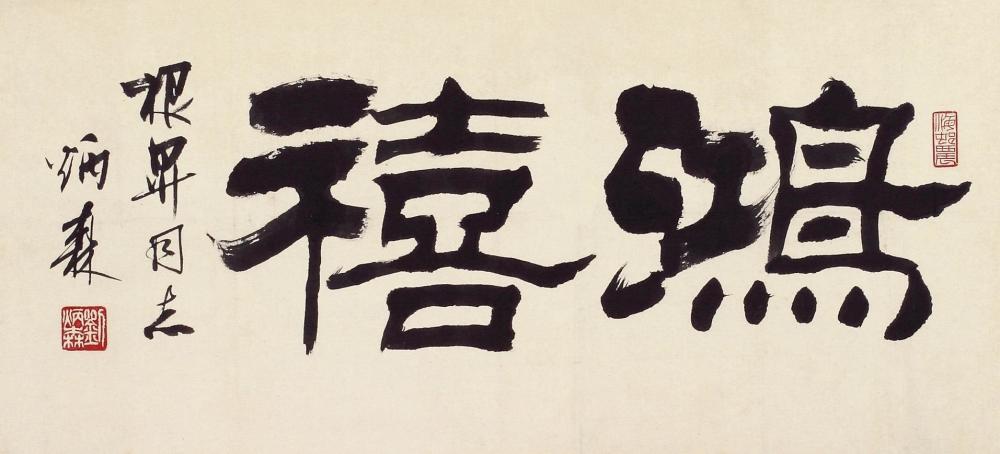 鴻禧
根昇同志
炳森
劉炳森